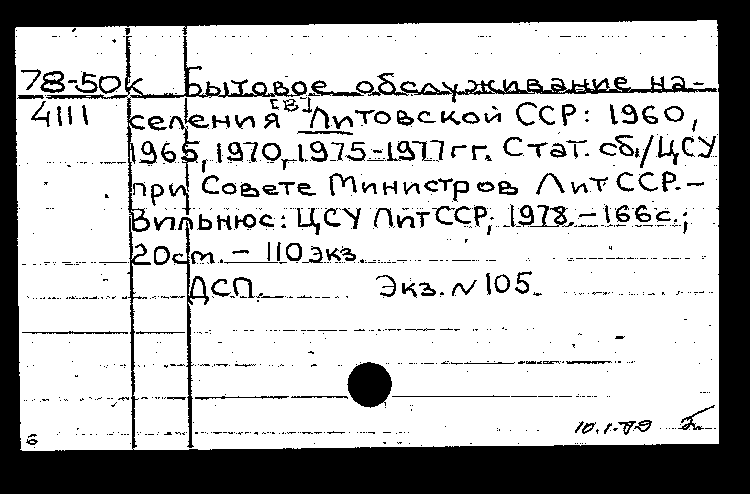 78-50к Бытовое обслуживание на-
4111 селения [в] Литовской ССР: 1960,
1965, 1970, 1975-1977 гг. Стат. сб./ЦСУ
при Совете Министров ЛитССР.-
Вильнюс: ЦСУ ЛитССР, 1978.-166с.;
20см. - 110 экз.
ДСП. Экз. № 105.
6